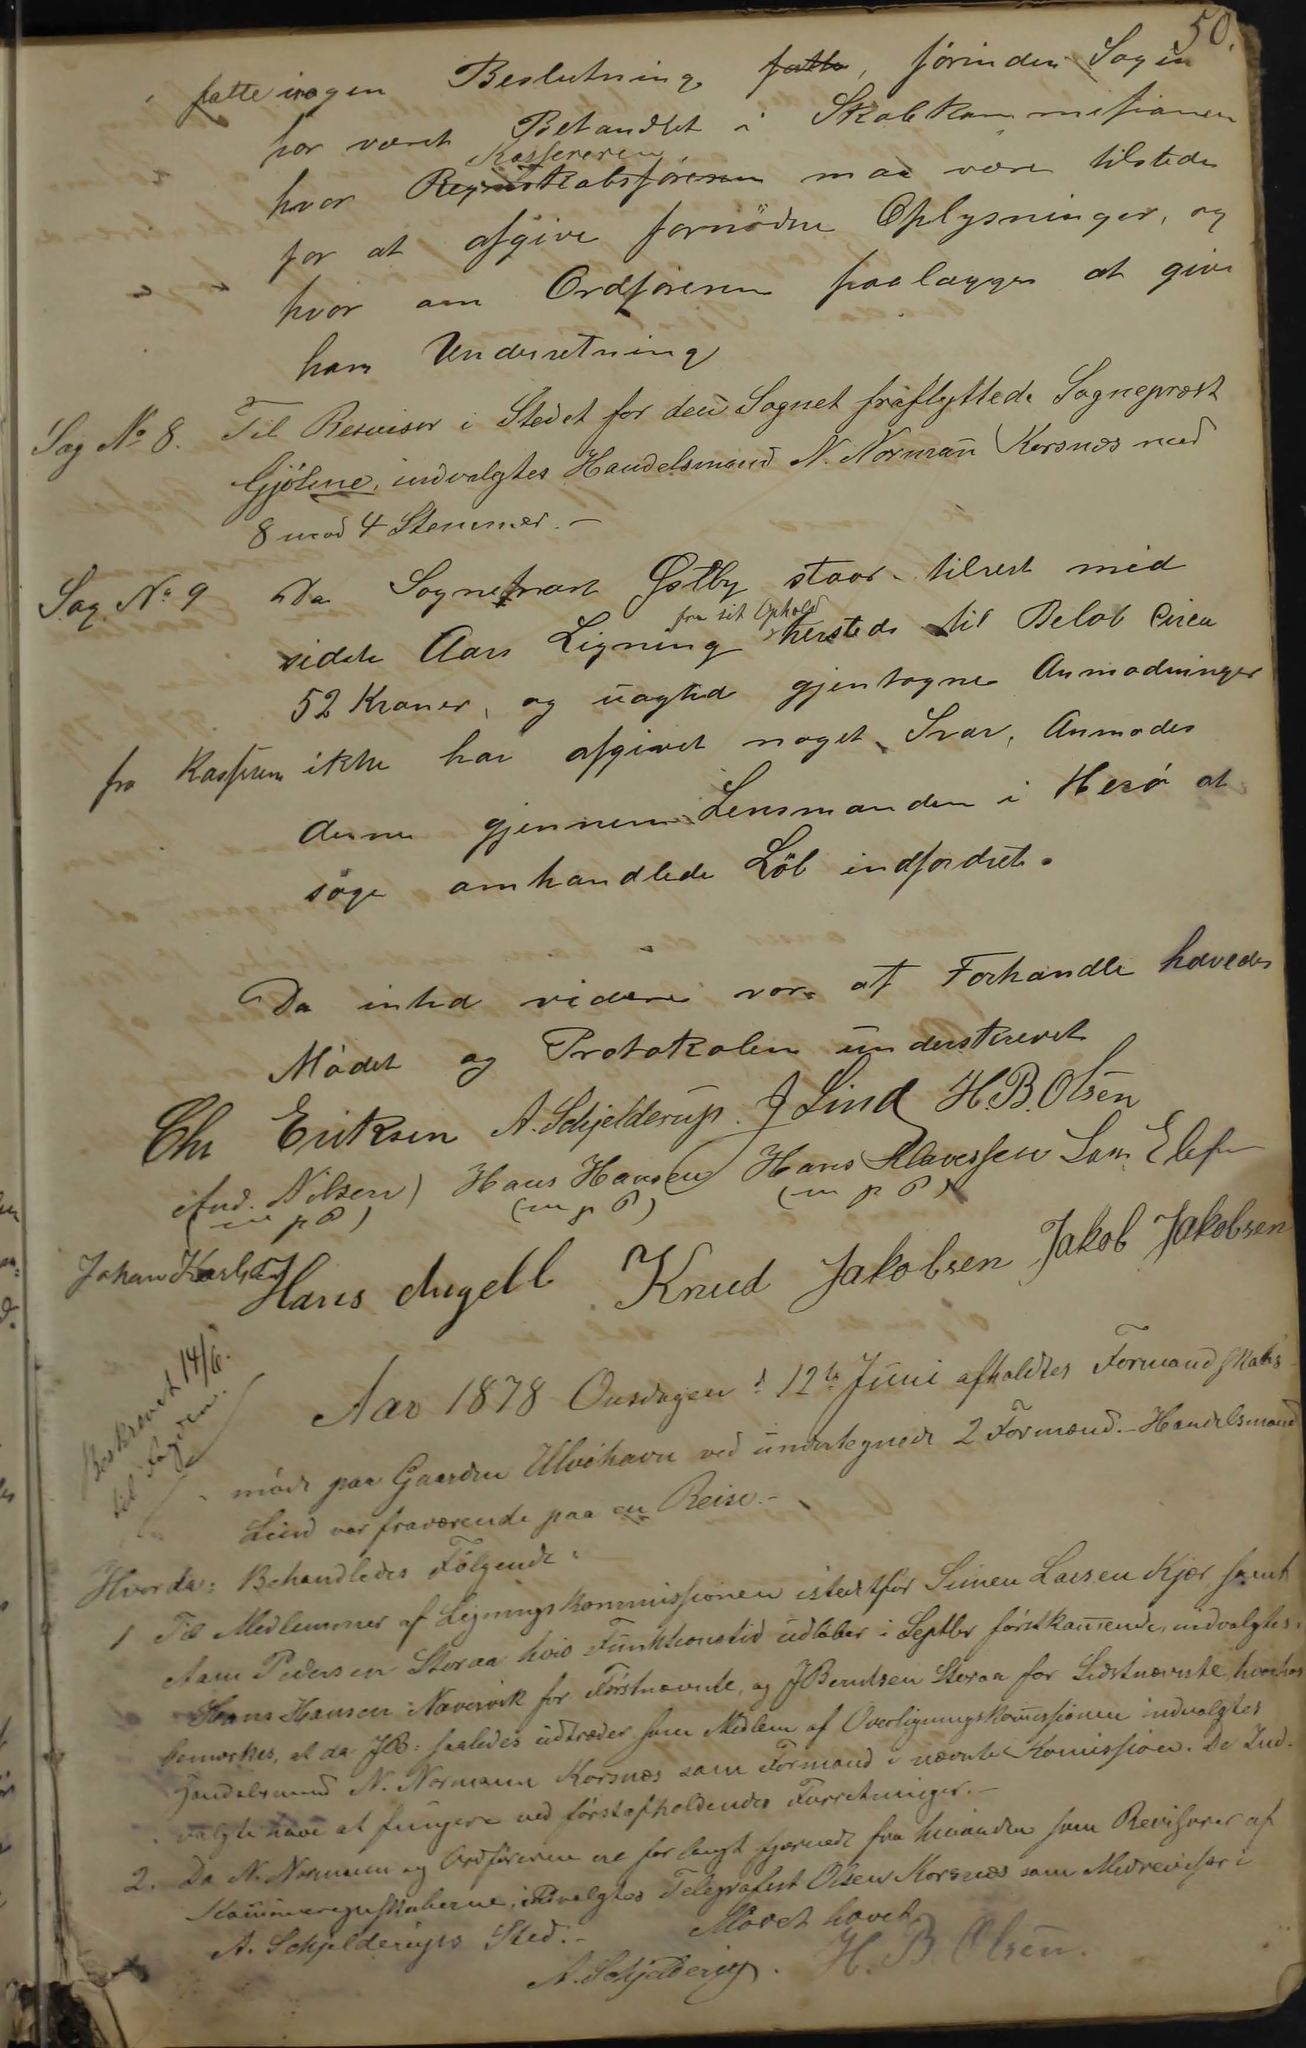 50.
fatte nogen Beslutning fatte, förinden Sagen
har været Behandlet i Skolekommissionen
Kassereren
hvor Regnskabsföreren maa være tilstede
for at afgive fornödne Oplysninger, og
hvor om Ordföreren paalægges at give
ham Underretning
Sag No 8. Til Revisor i Stedet for den Sognet fraflyttede Sognepræst
Gjölme, indvalgtes Handelsmand N. Normann Korsnæs med
8 mod 4 Stemmer. –
Sag No 9 Da Sognepræst Østby staar tilrest med
fra sit Ophold
sidste Aars Ligning hersteds til Beløb Circa
52 Kroner, og uagted gjentagne Anmodninger
fra Kasseren ikke har afgivet noget Svar, Anmodes
denne gjennem Lensmanden i Herö at
söge omhandlede Löb indfordret.
Da inted videre var at Forhandle hævedes
Mödet og Protokolen underskrevet
Chr Eriksen A. Schjelderup. J Lind H. B. Olsen
And. Nilsen Hans Hansen Hans Klavessen
(m p P) (m p P) (m p P)
Johan Hans Angell Knud Jakobsen Jakob Jakobsen
Beskrevet 14/6.
til Fogden.
Aar 1878 Onsdagen d. 12te Juni afholdtes Formandskabs-
møde paa Gaarden Ulvehavn ved undertegnede 2 Formænd. – Handelsmand
Lind var fraværende paa en Reise. –
Hvorda: Behandledes Følgende:
1 Til Medlemmer af Ligningskommissionen istedetfor Simen Larsen Kjær samt
Pedersen Storaa hvis Funktionstid udløber i Septbr førstkommende, indvalgtes:
Hans Hansen Naversvik for Førstnævnte, og J Berntsen Storaa for Sidstnævnte, hvorhos
bemærkes, at da J B: saaledes udtræder som Medlem af Overligningskommissionen indvalgtes
Handelsmand N. Normann Korsnæs som Formand i nævnte Komission. De Ind-
valgte have at fungere ved førstafholdendes Forretninger. –
2. Da N. Normann og Ordføreren ere for langt fjernede fra hinanden som Revisorer af
Kommuneregnskaberne, indvalgtes Telegrafist Olsen Korsnæs som Medrevisor i
A. Schjelderups Sted. – Mødet hævet.
A. Schjelderup. H. B. Olsen.